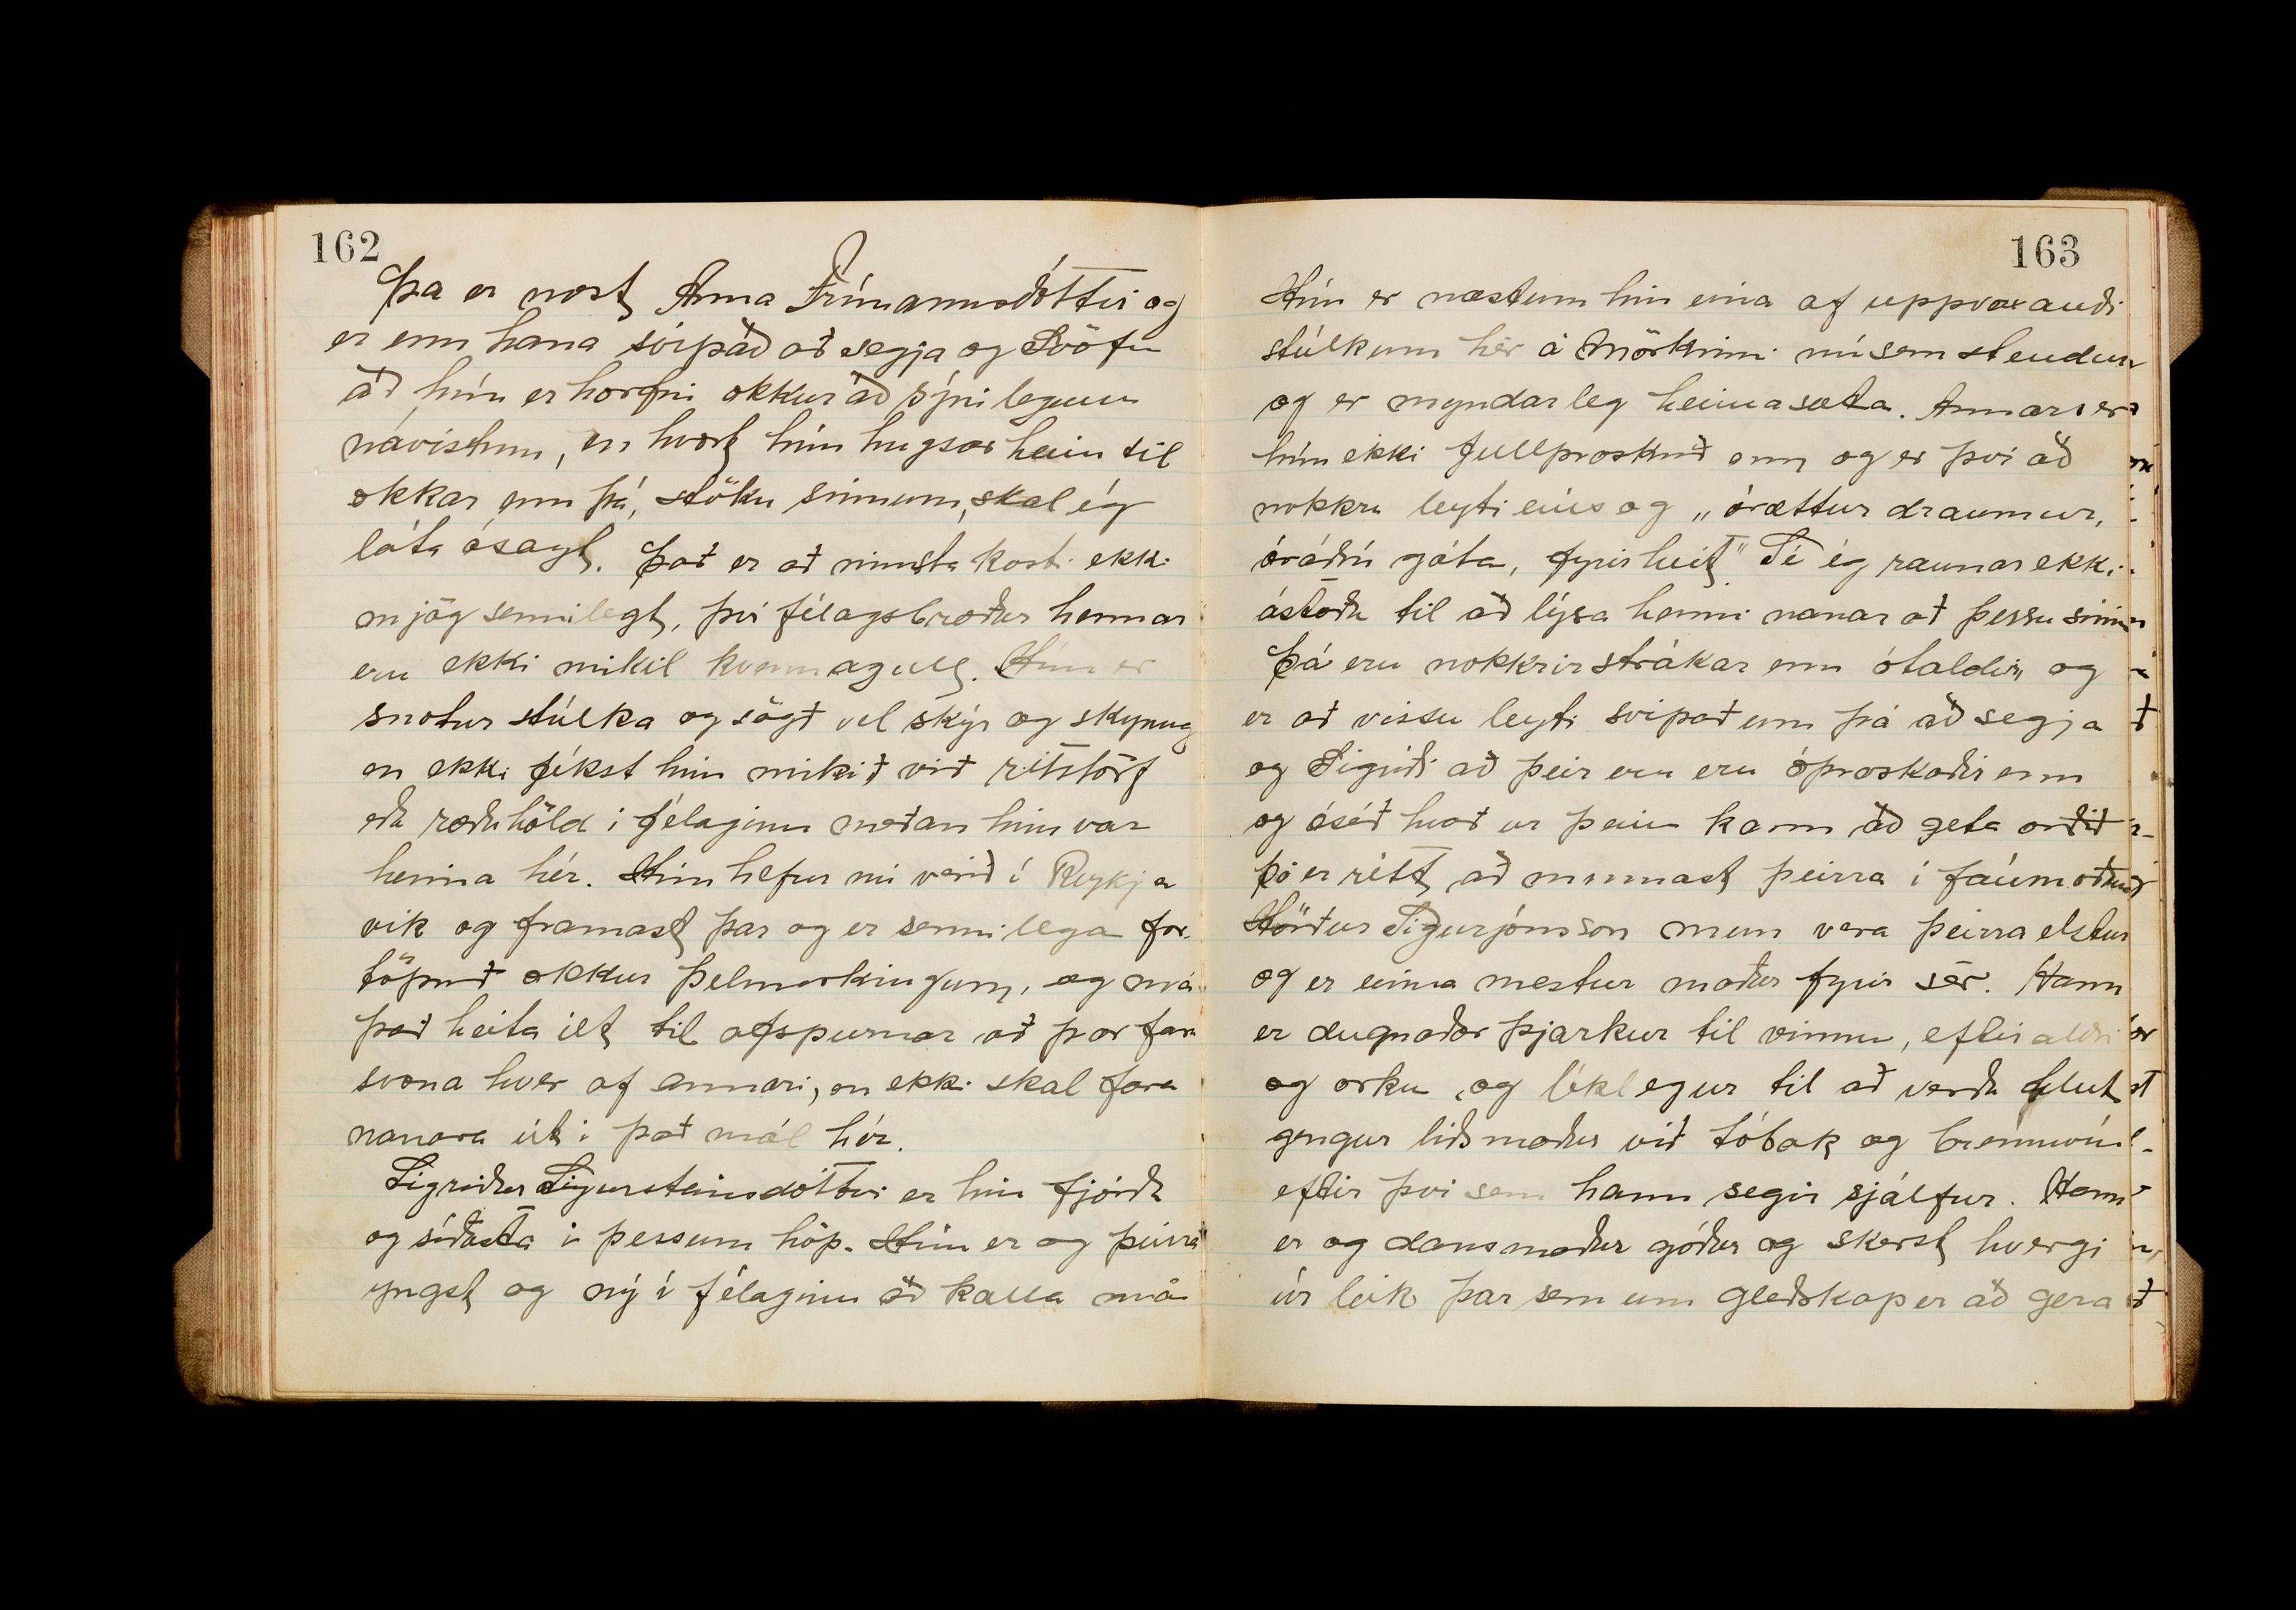 162
Þa er næst Anna Frímannsdóttir og
er enn hana svipáð að segja og Svöfu
að hún er horfni okkur að sýnilegum
návistum, en hvort hún hugsar heim til
okkar enn þá, stöku sinnum, skal ég
láta ósagt. Það er að minsta kosti ekki
mjög sennilegt, því félagsbræður hennar
eru ekki mikil kvennagull. Hún er
snotur stúlka og sögð vel skýr og skynug
en ekki fékst hún mikið við ritstörf
eða ræðuhöld i félaginu meðan hún var
heima hér. Hún hefur nú verið í Reykja
vik og framast þar og er sennilega for-
töpuð okkur Þelmerkingum, og má
það heita ilt til afspurnar að þær fara
svona hver af annari, en ekki skal fara
nanara út i það mál hér.
Sigriður Sigursteinsdóttir er hin fjórða
og síðasta i þessum hóp. Hún er og þeirra
yngst og ný í félaginu að kalla má
163
Hún er næstum hin eina af uppvaxandi
stúlkum hér á Mörkinni nú sem stendur
og er myndarleg heimasæta. Annars er
hún ekki fullþroskuð enn og er þvi að
nokkru leyti eins og „órættur draumur,
óráðin gáta, fyrirheit" Té ég raunar ekki
ástæðu til að lýsa henni nanar að þessu sinni
Þá eru nokkrir strákar enn ótaldir, og
er að vissu leyti svipað um þá að segja
og Sigriði að þeir eru eru óþroskaðir enn
og óséð hvað ur þeim kann að geta orðið
þó er rétt að minnast þeirra i fáum orðum
Hörður Sigurjónsson mun vera þeirra elstur
og er einna mestur maður fyrir sér. Hann
er dugnaðar þjarkur til vinnu, eftir aldri
og orku, og líklegur til að verða hlut
gengur liðsmaður við tóbak og brennivín
eftir þvi sem hann segir sjálfur. Hann
er og dansmaður góður og skerst hvergi
úr leik þar sem um gleðskap er að gera